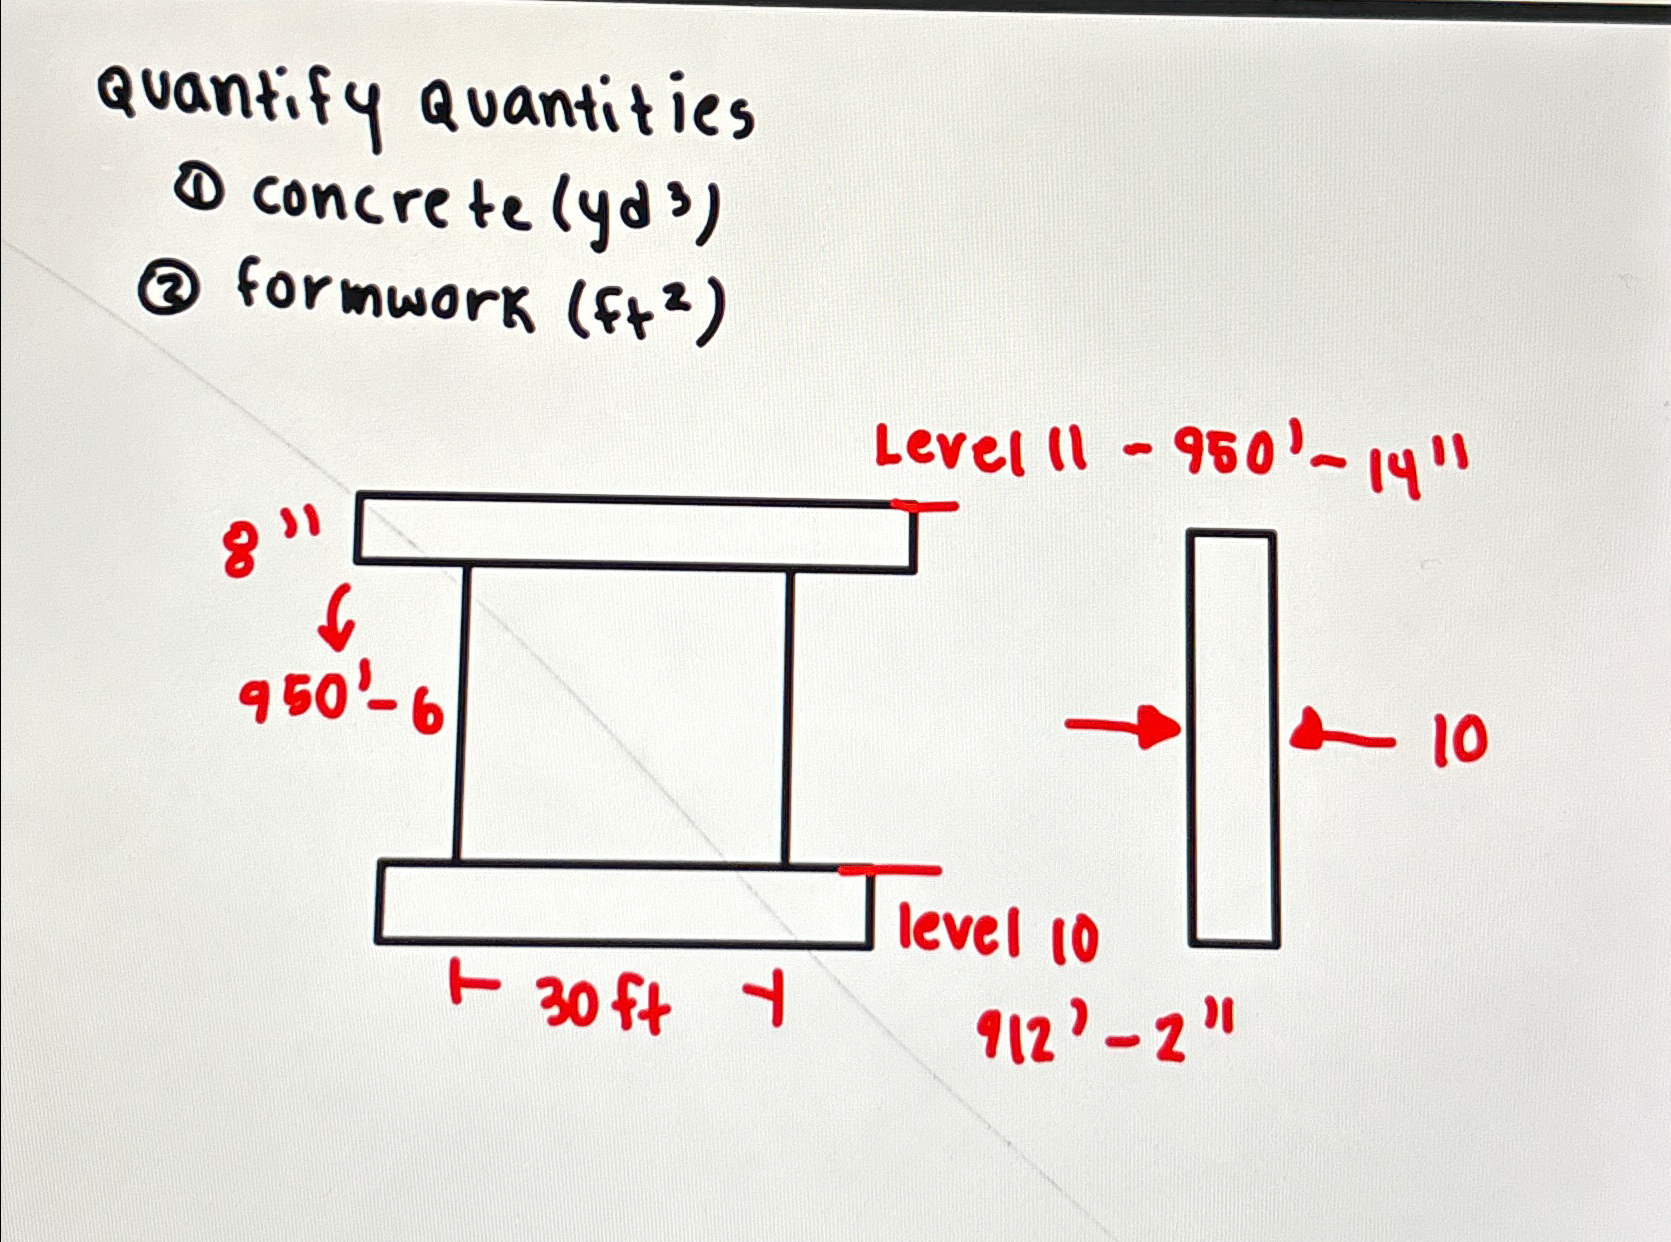 Quantify Quantities
① concrete (yd³)
② formwork (ft²)
Level 11 - 950'- 14"
8"
950'- 6
10
level 10
30 ft
912'- 2"